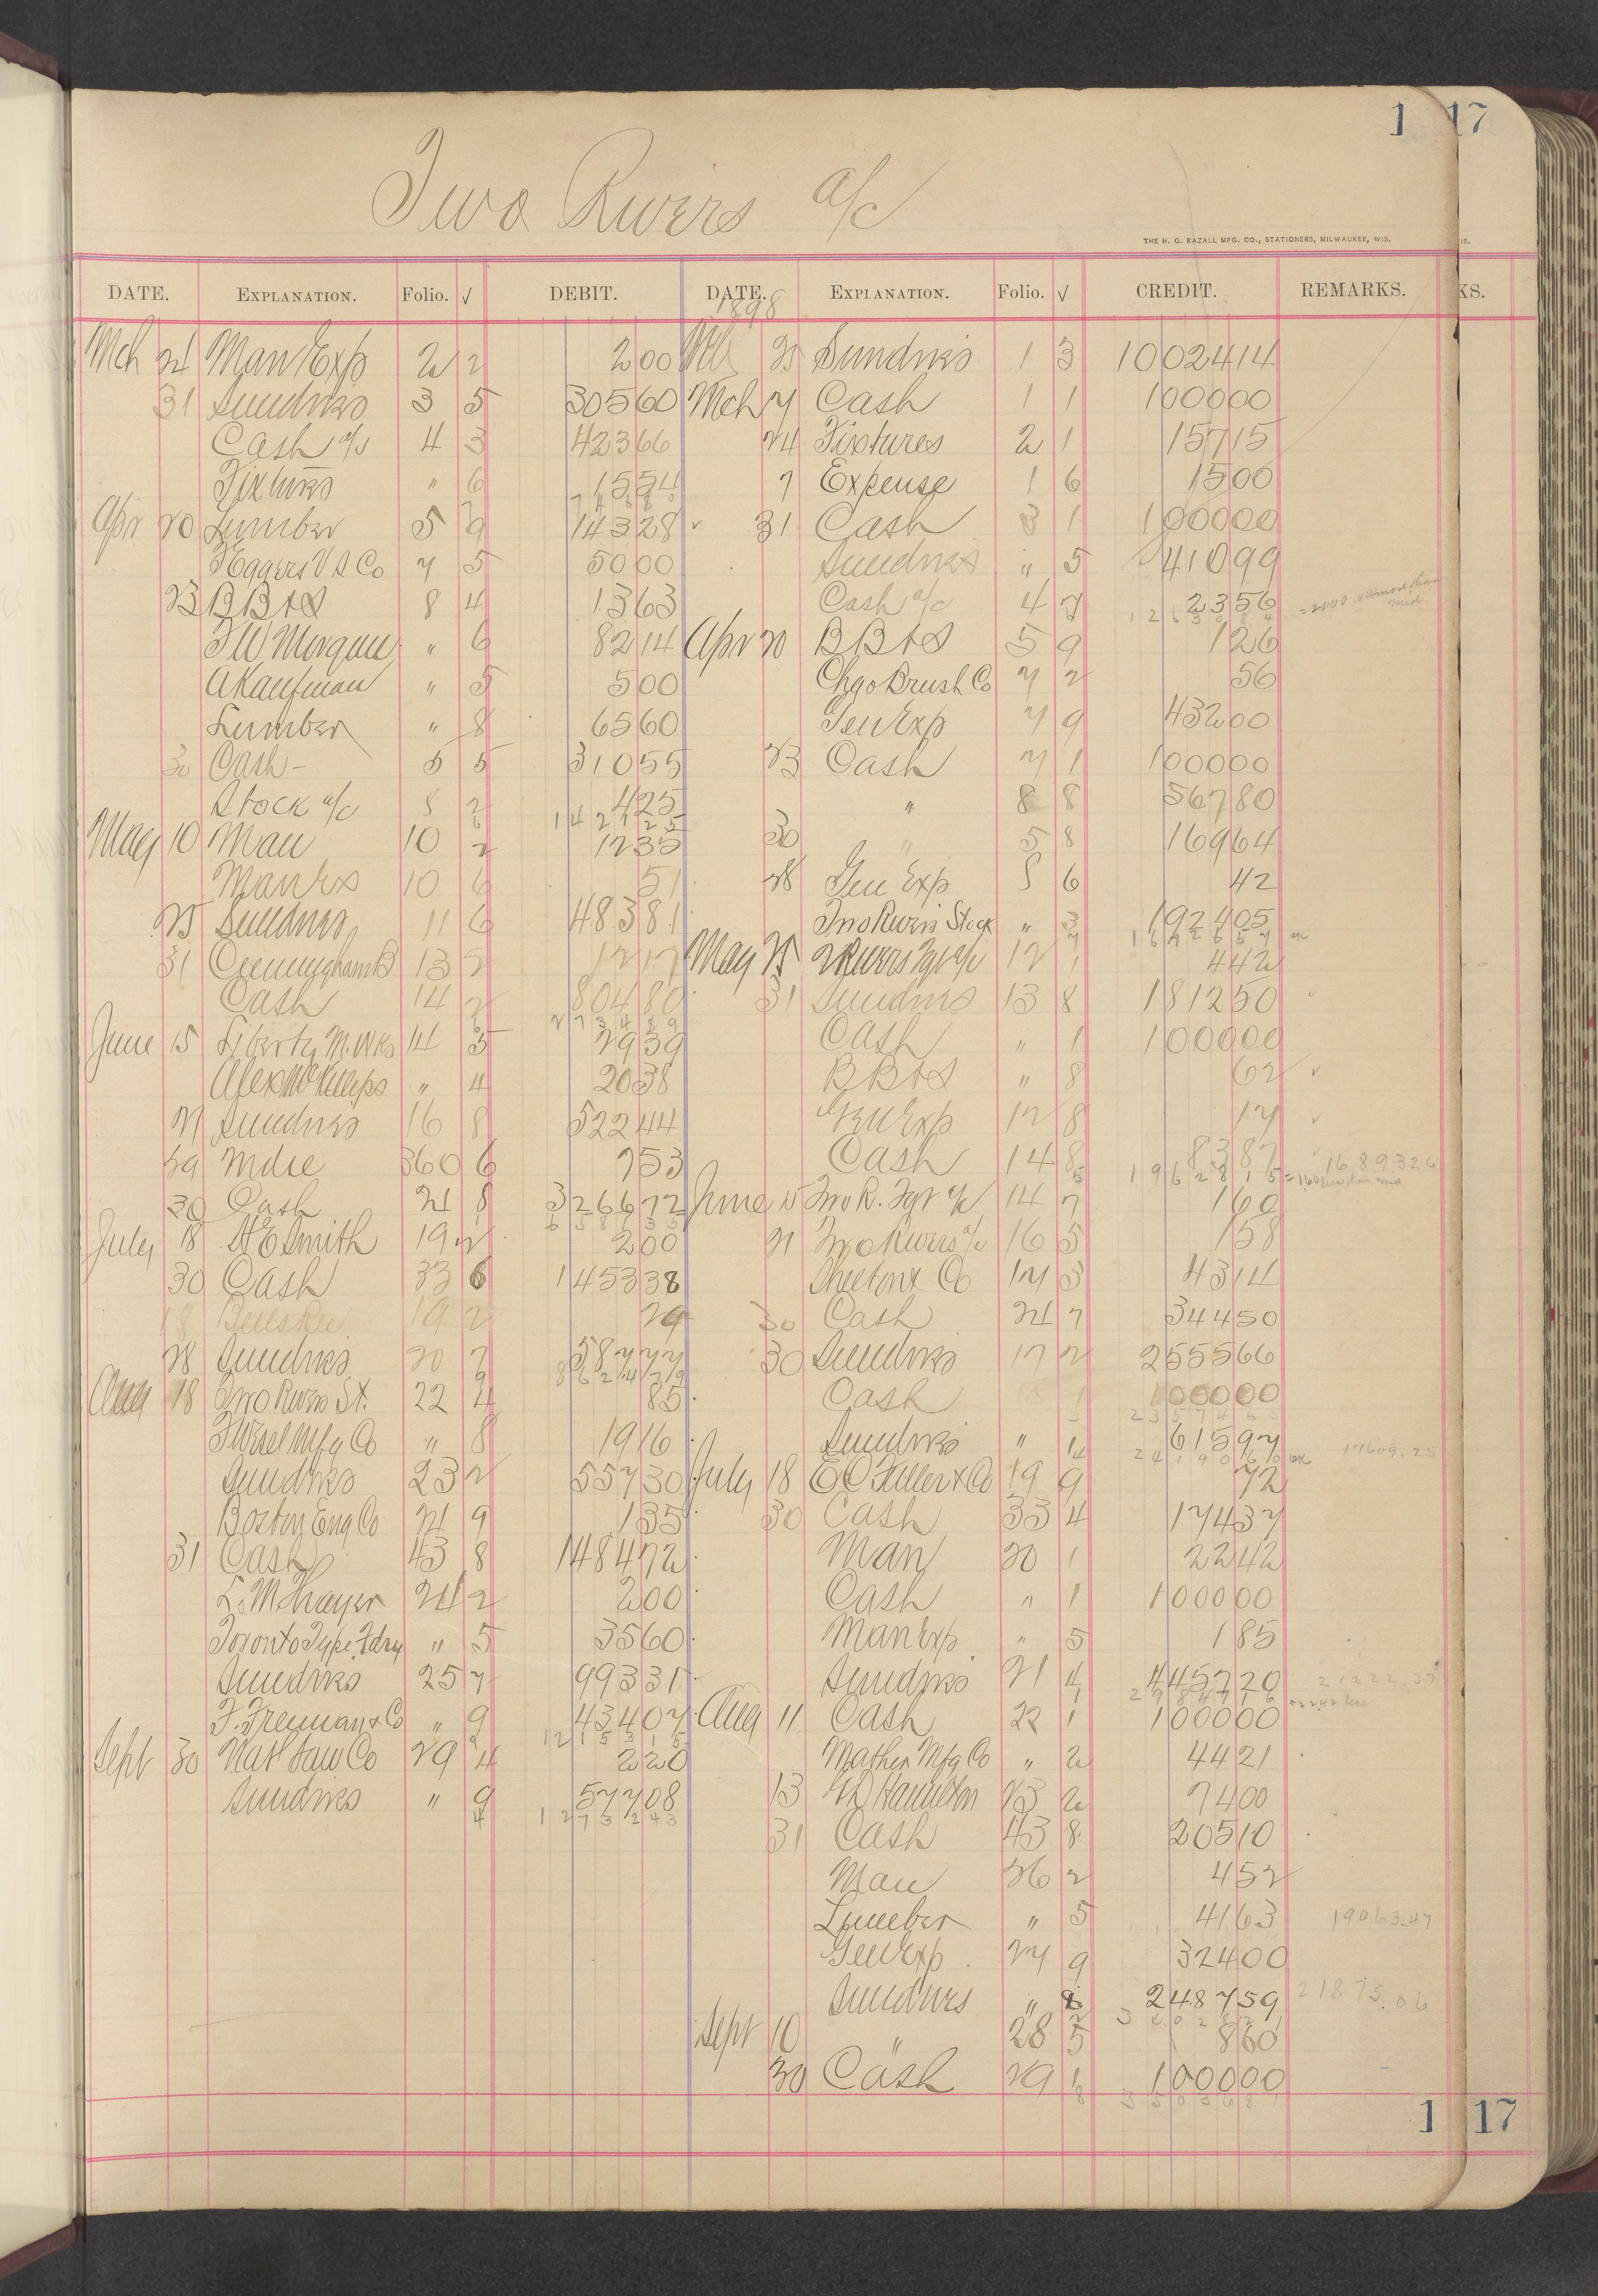 1 17
Two Rivers a/c
THE H. G. RAZALL MFG. CO., STATIONERS, MILWAUKEE, WIS. IS.
DATE. EXPLANATION. Folio. √ DEBIT. DATE. EXPLANATION. Folio. √ CREDIT. REMARKS. KS.
1898
Mch 24 Man Exp 2 2 200 25 Sundries 1 3 1002414
31 Sundries 3 5 30560 Mch 7 Cash 1 1 100000
Cash a/c 4 3 42366 24 Fixtures 2 1 15715
Fixtures " 6 1554 7 Expense 1 6 1500
Apr 20 Lumber 5 9 14328 31 Cash 3 1 100000
F Eggers V S Co 7 5 5000 Sundries " 5 41099
23 B B & S 8 4 1363 Cash a/c 4 7 2356
T W Morgan " 6 8214 Apr 20 B B & S 5 9 126
A Kaufman " 5 500 Chgo Brush Co 7 2 56
Lumber " 8 6560 Gen Exp 7 9 43200
30 Cash 5 5 31055 23 Cash 7 1 100000
Stock a/c 8 2 425 " 8 8 56780
142125
May 10 Man 10 2 1235 30 " 5 8 16964
Man Ex 10 6 51 28 Gen Exp 8 6 42
25 Sundries 11 6 48381 Two Rivers Stock " 3 192405
31 Cunningham B 13 2 1217 May 25 2 Rivers Fgt a/c 12 1 442
Cash 14 2 80480 31 Sundries 13 8 181250
273489
June 15 Liberty M. Wks 14 5 2939 Cash " 1 100000
Alex McKillips " 4 2038 B B & S " 8 62
21 Sundries 16 8 52244 Gen Exp 12 8 17
29 Mdse 360 6 753 Cash 14 8 8387
1962815
30 Cash 24 8 326672 June 15 Two R. Fgt a/c 14 7 160
July 18 H E Smith 19 2 200 21 Two Rivers a/c 16 5 158
30 Cash 33 6 145338 & Co 17 3 4314
18 19 2 29 30 Cash 24 7 34450
28 Sundries 20 7 58777 30 Sundries 17 2 255566
862479
Aug 18 Two Rivers St. 22 4 85 Cash 18 1 100000
F Wesel Mfg Co " 8 1916 Sundries " 1 61597
2419060 17609.25
Sundries 23 2 55730 July 18 E C Fuller & Co 19 9 72
Boston Eng Co 24 9 135 30 Cash 33 4 17437
31 Cash 43 8 148472 Man 20 1 2242
L. M Thayer 24 2 200 Cash " 1 100000
Toronto Type Fdry " 5 3560 Man Exp " 5 185
Sundries 25 7 99331 Sundries 21 4 445720 21222.35
F. Freeman & Co " 9 43407 Aug 11 Cash 22 1 100000
1215315
Sept 30 Nat Saw Co 29 4 220 Mather Mfg Co " 2 4421
Sundries " 9 57708 13 Hamilton 23 2 7400
1273243
31 Cash 43 8 20510
Man 26 2 452
Lumber " 5 4163 19063.47
Gen Exp 27 9 32400
Sundries " 8 248759 21875.06
Sept 10 " 28 5 860
30 Cash 29 1 100000
1 17